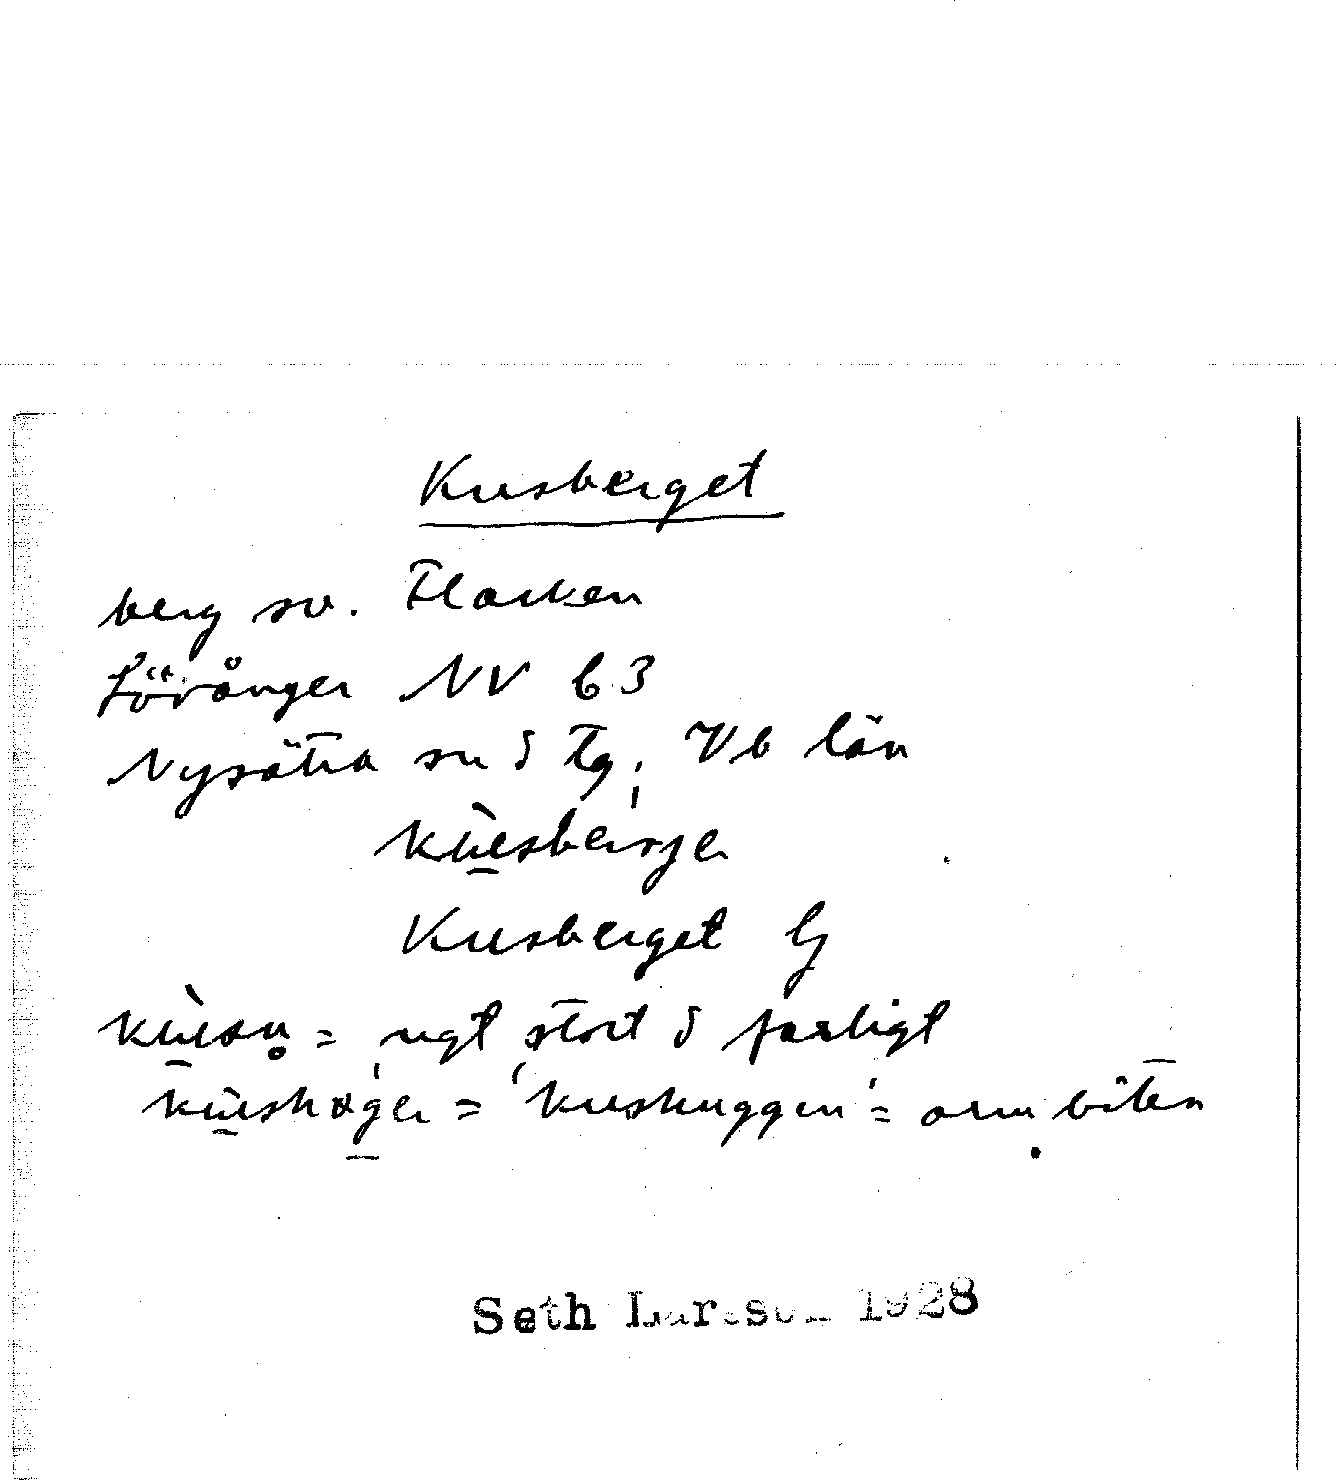 Kusberget
berg sv. Flarken
Lövånger NV b3
Nysätra sn o Tg, Vb län
kùesberje
Kusberget Gj
kùesn̥ = ngt stort o farligt
kùeshøgen = 'kushuggen' = ormbiten
Seth Larsson 1928